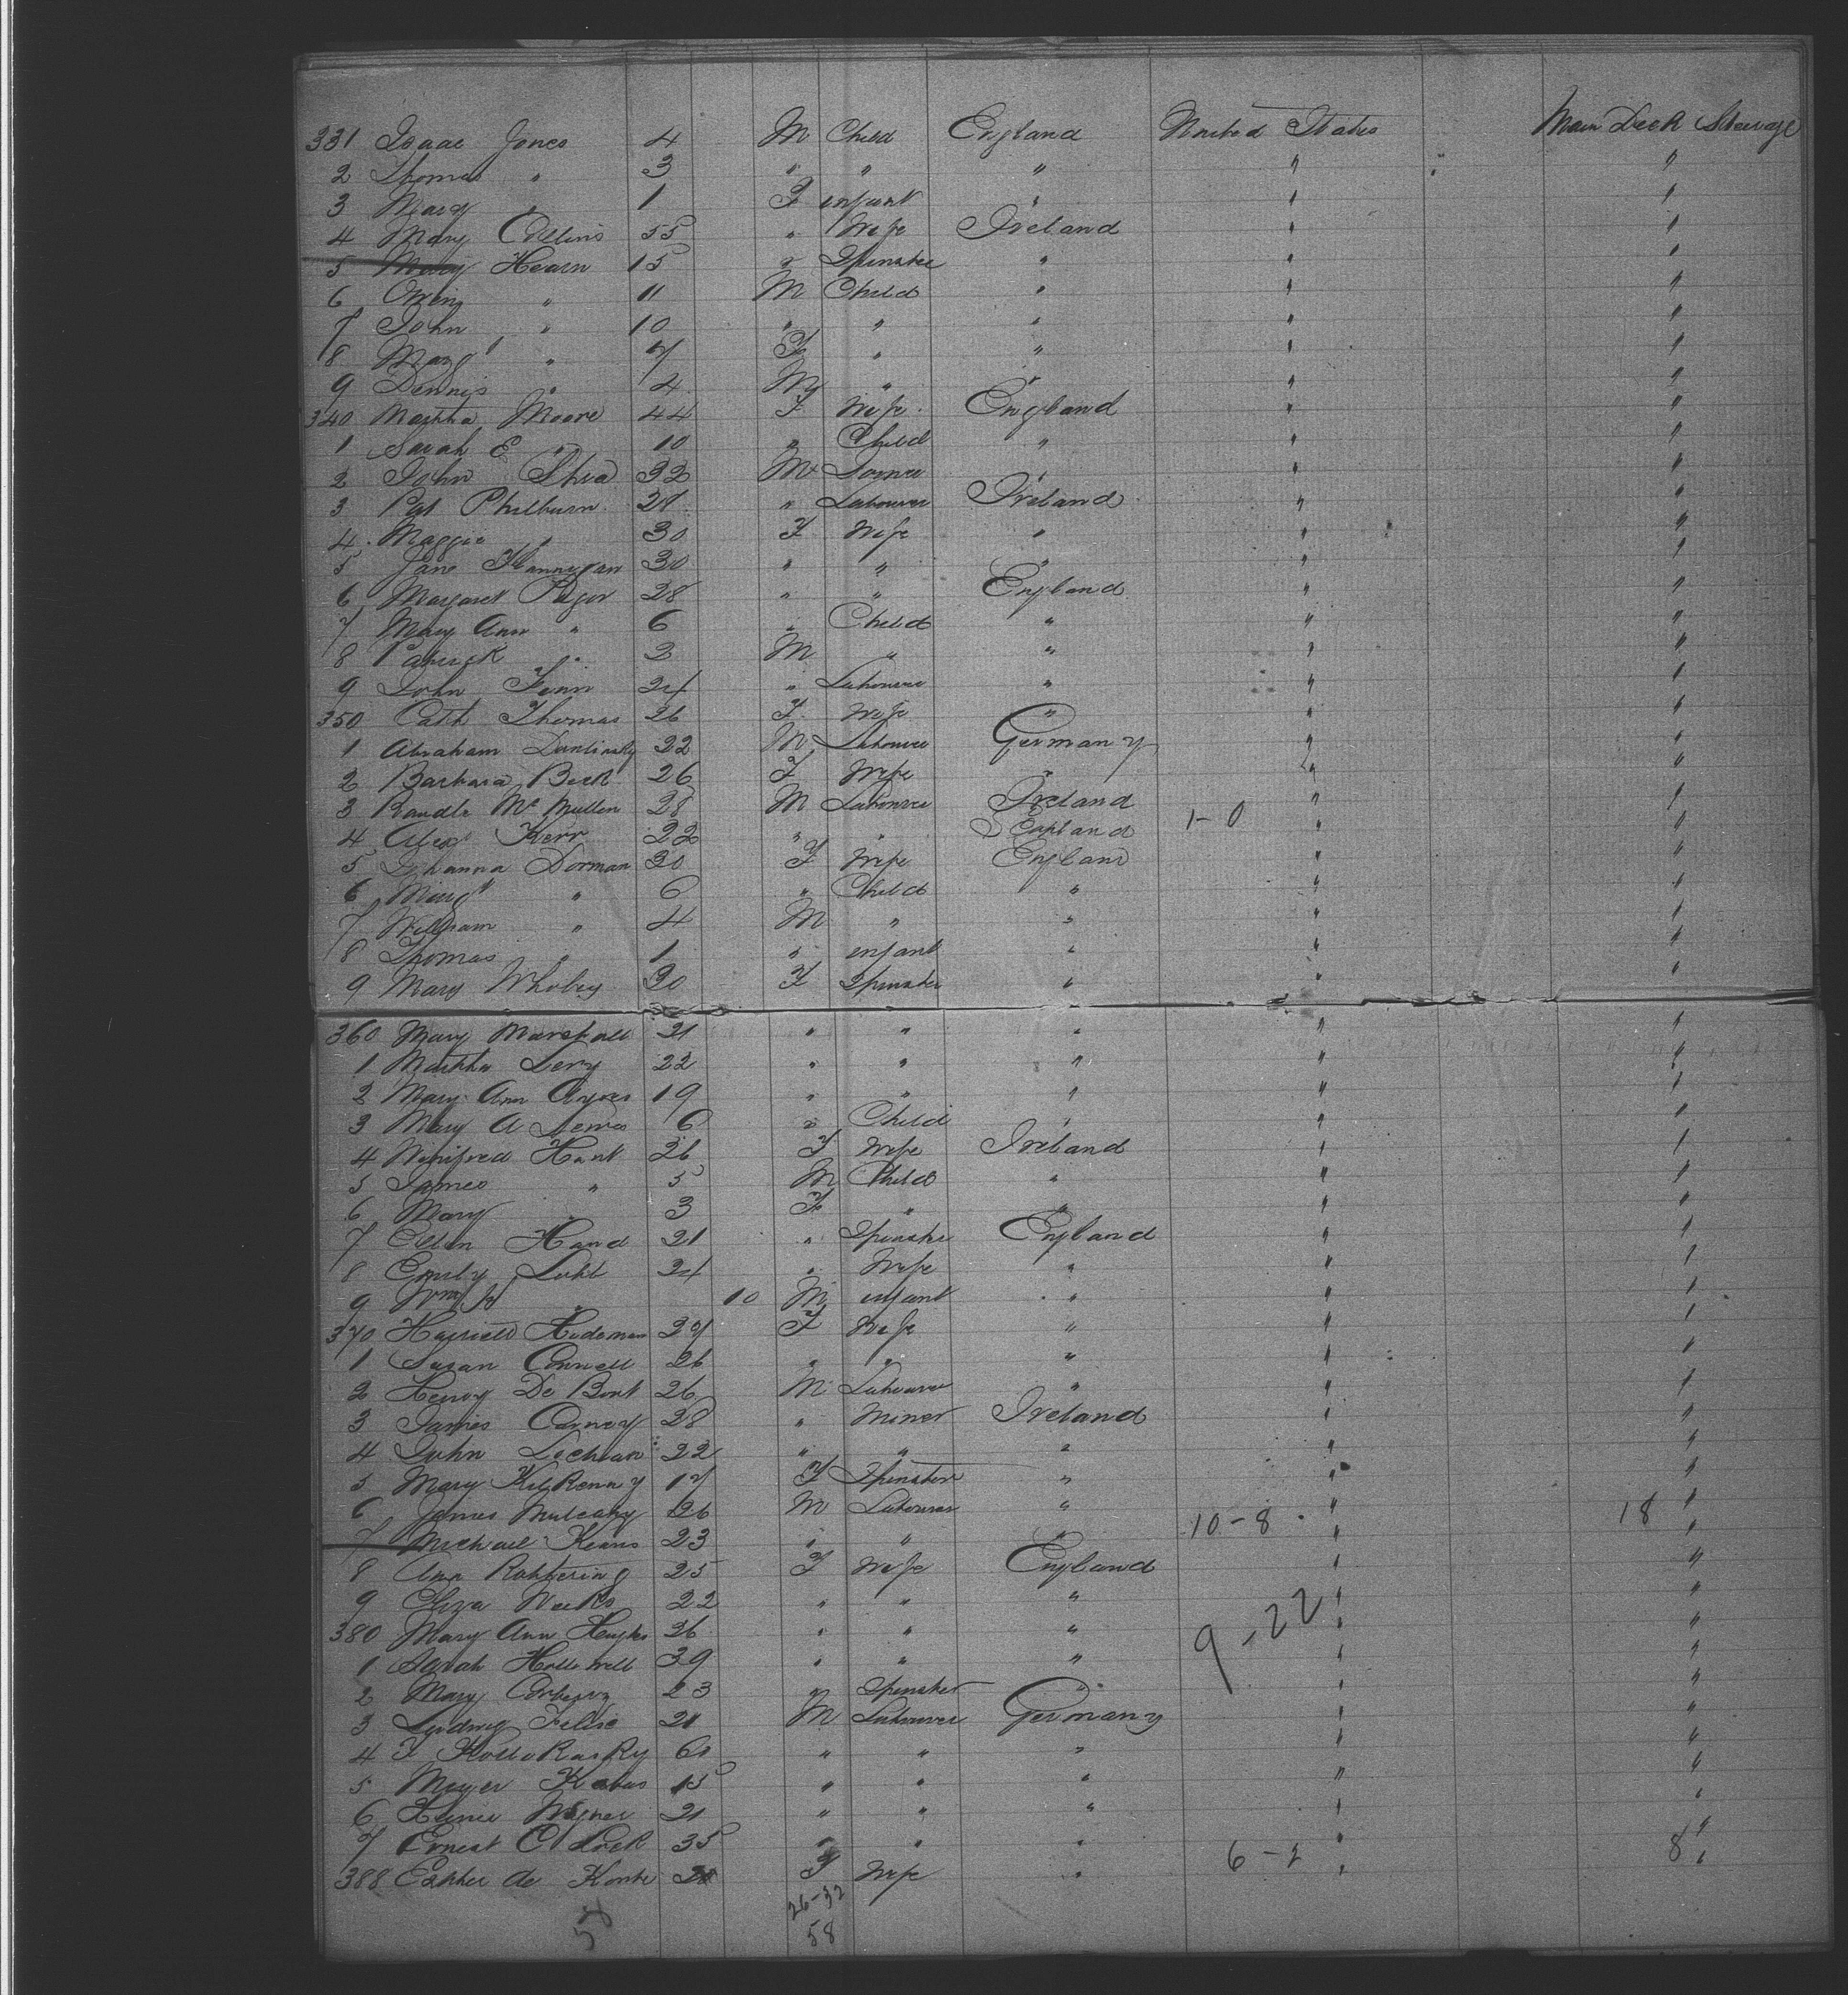 331 Isaac Jones 4 M Child England United States Main Deck Steerage
2 Thomas " 3 " " " " "
3 Mary " 1 F infant " " "
4 Mary Collins 55 " Wife Ireland " "
5 Mary Hearn 15 " Spinster " " "
6 Owen " 11 M Child " " "
7 John " 10 " " " " "
8 Margt " 7 F " " " "
9 Dennis " 4 M " " " "
340 Martha Moore 44 F Wife England " "
1 Sarah E " 10 " Child " " "
2 John Shea 32 M " " "
3 Pat Philburn " Labourer Ireland " "
4 Maggie " 30 F Wife " " "
5 Jane Flannygan 30 " " " " "
6 Margaret 28 " " England " "
7 Mary Ann " 6 " Child " " "
8 Patrick " 2 M " " " "
9 John Fenn 24 " Labourer " " "
350 Cath Thomas 26 F Wife " " "
1 Abraham 22 M Labourer Germany " "
2 Barbara Beck 26 F Wife " " "
3 Randle McMullen 28 M Labourer Ireland " "
4 Alex Kerr 22 " " Scotland 1-0 " "
5 Johanna Dorman 30 F Wife England " "
6 Margt " 6 " Child " " "
7 William " 4 M " " " "
8 Thomas " 1 " infant " " "
9 Mary Whobey 30 F Spinster " " "
360 Mary Marshall 21 " " " " "
1 Martha Levy 22 " " " " "
2 Mary Ann Ayres 19 " " " " "
3 Mary A Lewis 6 " Child " " "
4 Winifred Hunt 26 F Wife Ireland " "
5 James " 5 M Child " " "
6 Mary " 3 F " " " "
7 Ellen Hand 21 " Spinster England " "
8 Emily 24 " Wife " " "
9 Wm " 10 M infant " " "
370 Harriett 27 F Wife " " "
1 Susan Connell 26 " " " " "
2 Henry De Bont 26 M Labourer " " "
3 James Carney 28 " Miner Ireland " "
4 John Lochlan 22 " " " " "
5 Mary Kilkenny 17 F Spinster " " "
6 James Mulcahy 26 M Labourer " 10-8 " 18 "
7 Michael Kearns 23 " " " " "
8 Ann 25 F Wife England " "
9 Eliza Weeks 22 " " " " "
380 Mary Ann Hughes 26 " " " 9-22 " "
1 Sarah Hallewell 39 " " " " "
2 Mary 23 " Spinster " " "
3 Ludwig 21 M Labourer Germany " "
4 F 60 " " " " "
5 Meyer 15 " " " " "
6 Wegner 21 " " " " "
7 Ernest C Lock 35 " " " " "
388 Esther de F Wife " 6-2 " 8 "
26-32
58